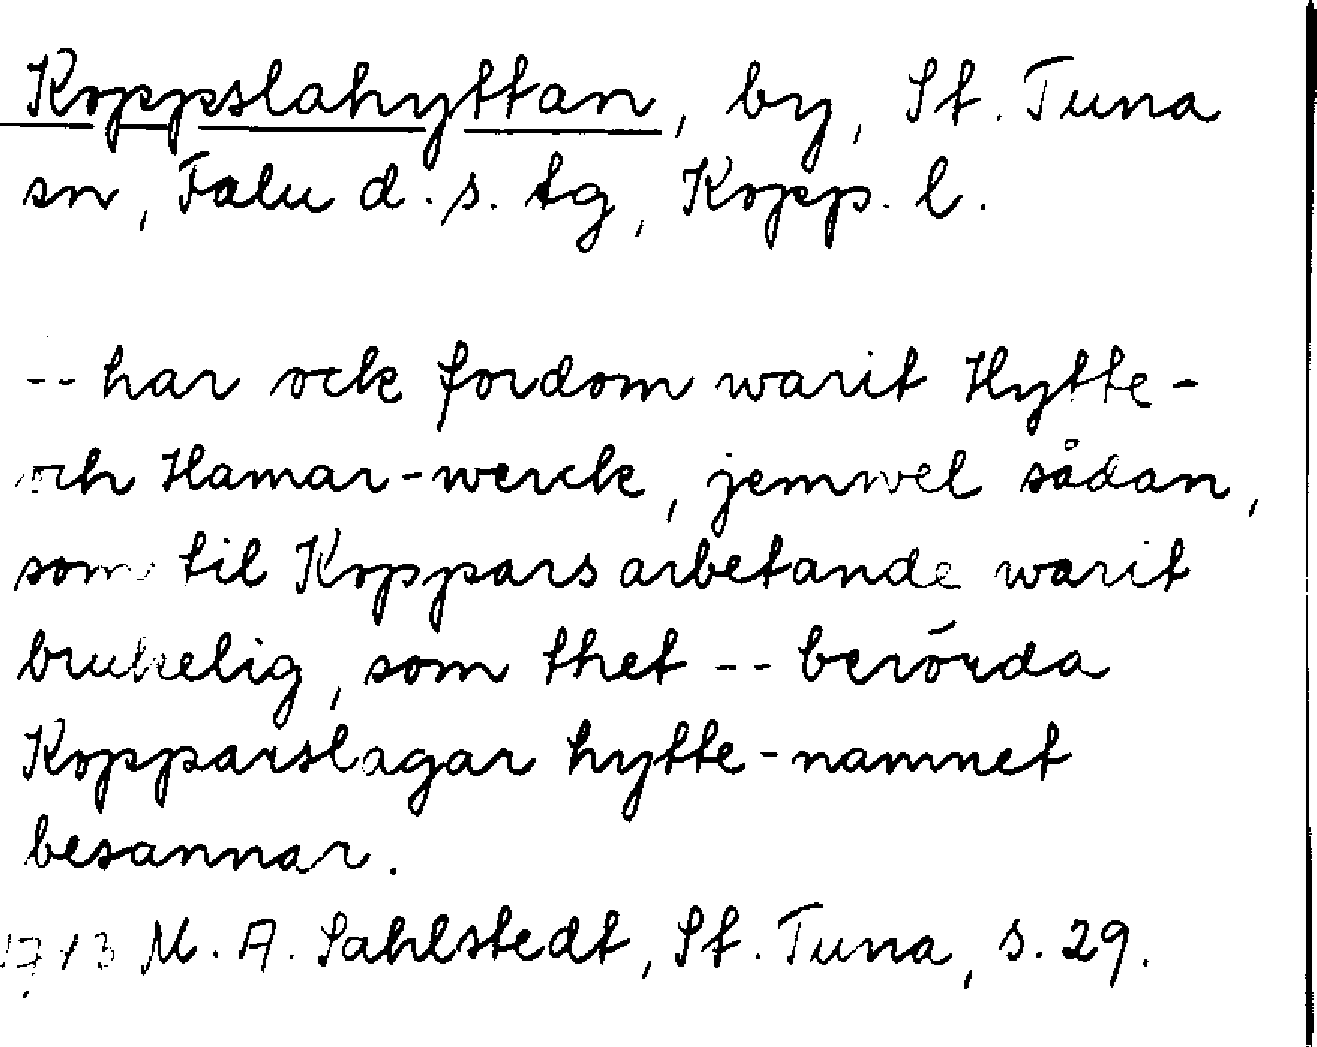 Koppslahyttan, by, St. Tuna
sn, Falu d.s. tg, Kopp. l.
-- har ock fordom warit Hytte-
och Hamar-werck, jemwel sådan,
som til Koppars arbetande warit
brukelig, som thet -- berörda
Kopparslagar hytte-namnet
besannar.
M. A. Sahlstedt, St. Tuna, s. 29.